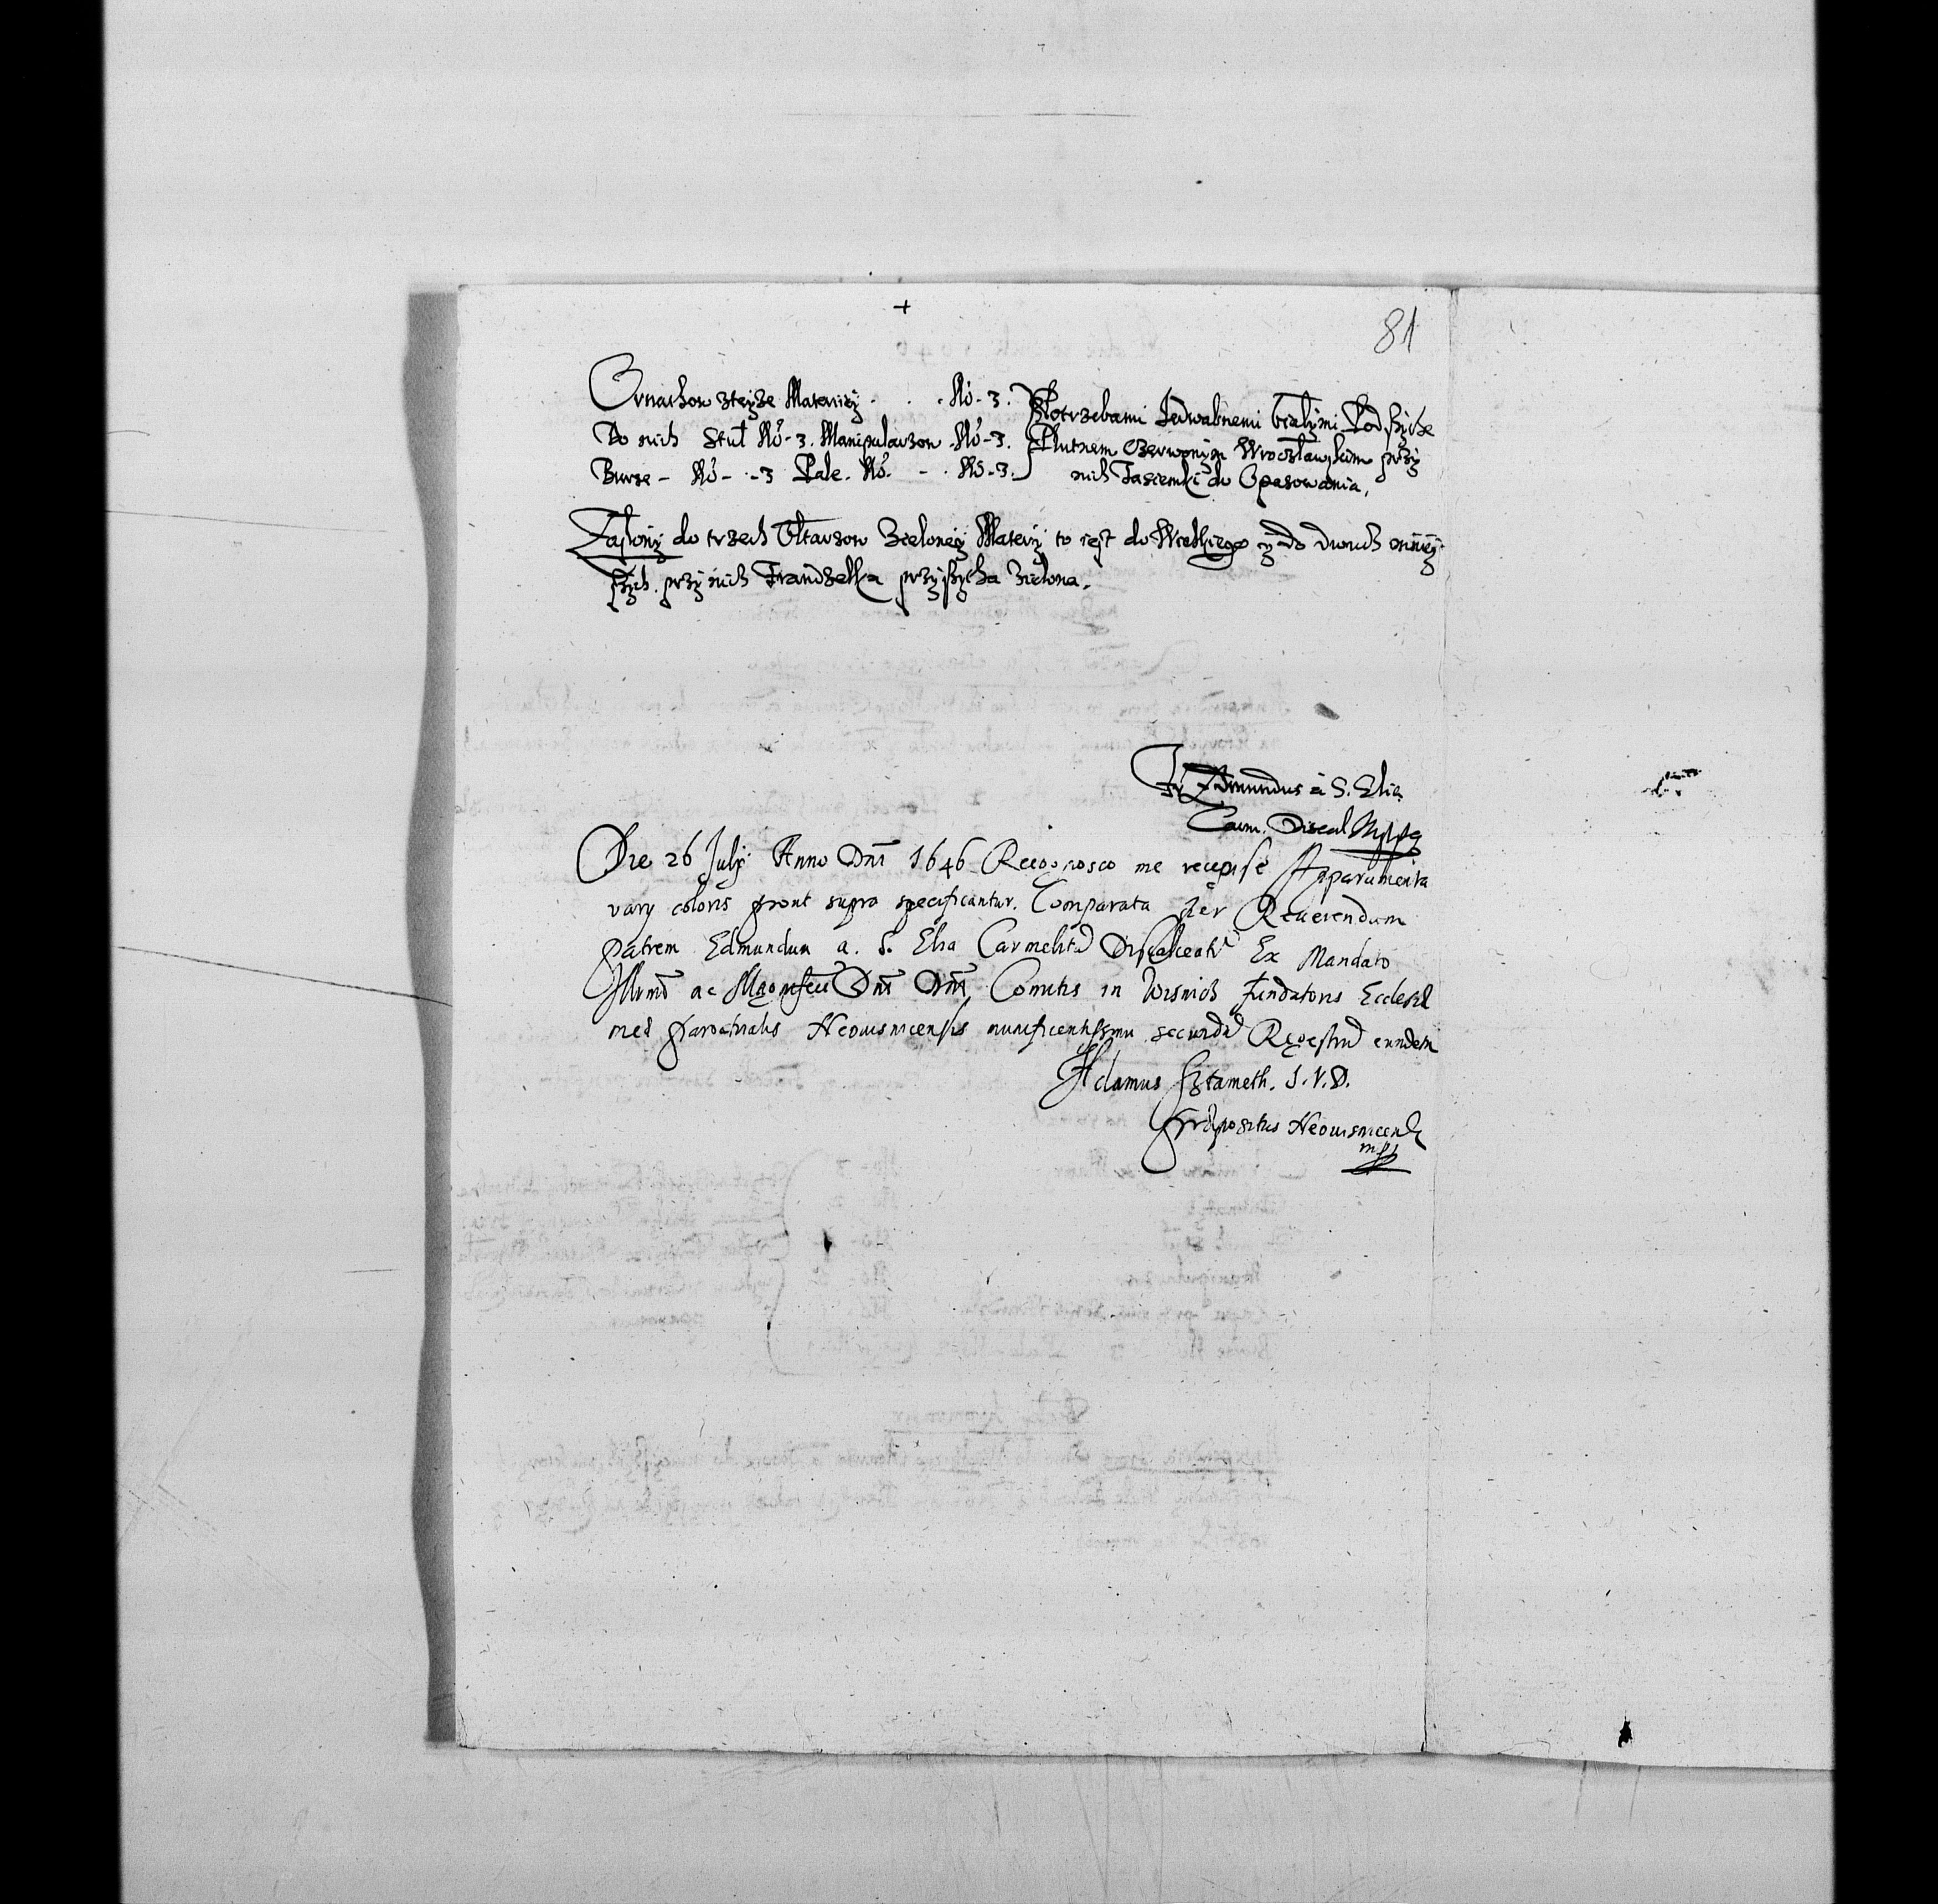 +
81
Ornathow zteyze Materiey . . . No. 3. Potrzebami Jedwabnemi białymi Podszyte
Do nich Stuł No. 3. Manipularzow No. 3. Płutnem Czerwonym Wrocławskim przy
Burse - No - - 3 Pale. No. - . No. 3. nich Tasiemki do Opasowania,
Zasłony do trzech Ołtarzow Zieloney Matery to iest do Wielkiego y do dwuch mniey
szych. przy nich Frandzelka przyszyta Zielona.
Fr. Edmundus à S. Elia
Carm. Discal Mppa
Die 26 July Anno Dni 1646 Recognosco me recepisse Apparamenta
vary coloris prout supra specificantur. Comparata per Reuerendum
patrem Edmundum a. S. Elia Carmelitā Discalceatū Ex Mandato
Illmi ac Magnifici Dni Dni Comitis in Wisnicz fundatoris Ecclesiæ
meæ parochialis Neowisnicensis munificentissimi secundū Regestrū eundem
Adamus Sztameth. J. V. D.
Præpositus Neowisnicensis
mpp